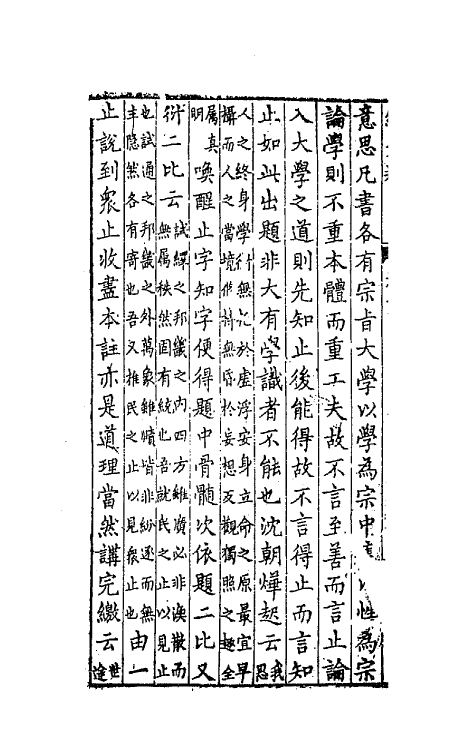 意思凡書各有宗旨大學以學為宗中以性為宗
論學則不重本體而重工夫故不言至善而言止論
入大學之道則先知止後能得故不言得止而言知
止如此出題非大有學識者不能也沈朝燁起云我思
人之終身學術無於虛浮安身立命之原最宜早
攝而人之當境作計無於妄想反觀獨照之趣全
屬真明喚醒止字知字便得題中骨髓次依題二比又
衍二比云試繹之邦畿之內四方雖廣必非渙散而
無屬秩然固有統也吾就民之止以見止
也試通之邦畿之外萬象雖賾皆非紛逐而無
主隱然各有寄也吾又推民之止以見衆止也由一
止說到衆止收盡本註亦是道理當然講完繳云世